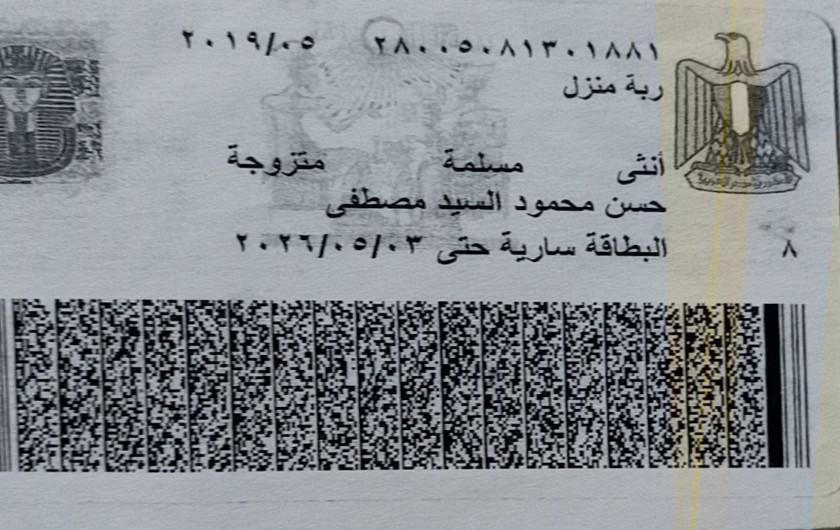 ٢٨٠٠٥٠٨١٣٠١٨٨١ ٢٠١٩/٠٥
ربة منزل
أنثى مسلمة متزوجة
حسن محمود السيد مصطفى
البطاقة سارية حتى ٢٠٢٦/٠٥/٠٣
٨